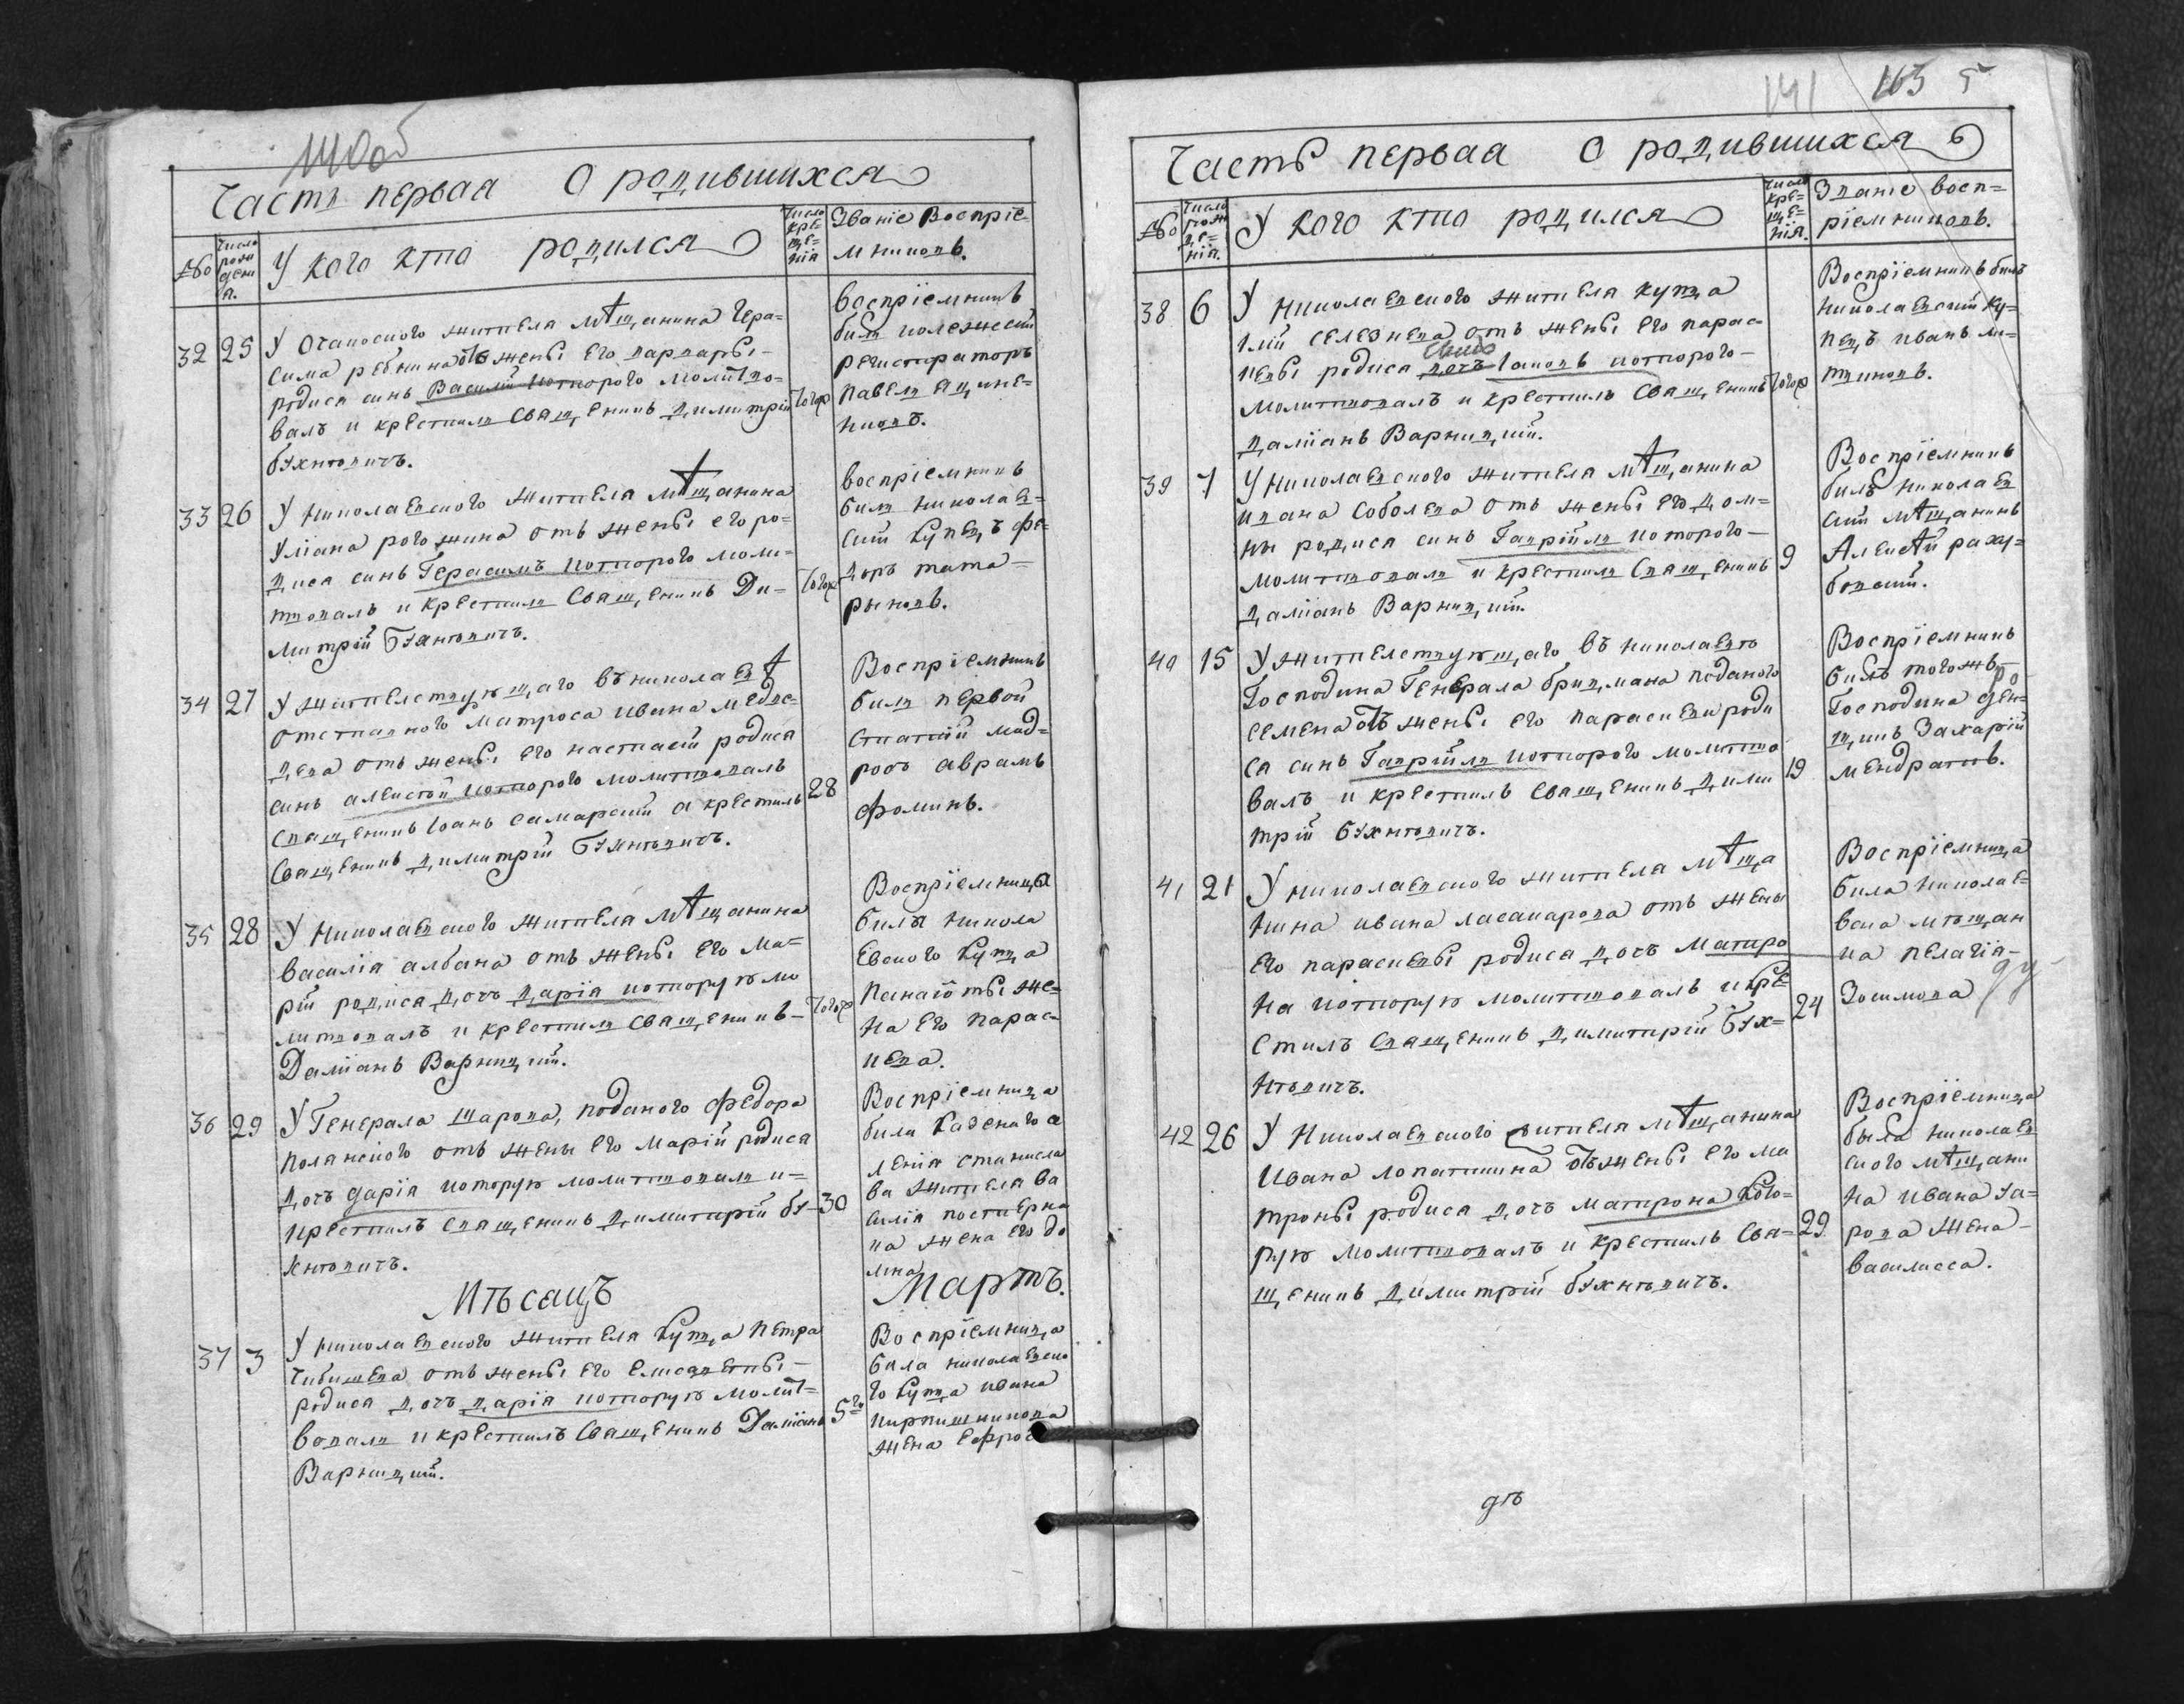 140об
Часть первая О родившихся
№
Число рожденія.
У кого кто родился
Число крещенія
Званіе воспріе-
мниковъ.
32 25 У Очаковского жителя мѣщанина Гера-
сима рѣбкина отъ жены его варвары-
родися синъ Василій которого молитво-
валъ и крестилъ Священикъ димитрій тогож
бухнѣвичъ.
воспріемникъ
билъ колежскій
регистраторъ
павелъ
никовъ.
33 26 У николаевского жителя мѣщанина
Уліана рогожина отъ жены его ро-
дися синъ Герасимъ которого моли-
твовалъ и крестилъ Священикъ Ди- тогож
митрій Бухнѣвичъ.
воспріемникъ
билъ николаев-
скій купецъ фе-
доръ тата-
рыновъ.
34 27 У жителствующаго въ николаевѣ
отставного матроса ивана медве-
дева отъ жены его настасіи родися
синъ алексѣй которого молитвовалъ
священикъ Іоанъ самарскій а крестилъ 28
Священикъ димитрій Бухнѣвичъ.
Воспріемникъ
билъ первой
статіи мад-
росъ аврамъ
фоминъ.
35 28 У николаевского жителя мѣщанина
василія албана отъ жены его ма-
ріи родися дочъ дарія которую мо
литвовалъ и крестилъ Священикъ- тогож
Даміанъ Варницкій.
Воспріемница
била никола
евского купца
панаіоты же-
на его парас-
кева.
36 29 У Генерала шарова, поданого федора
полянского отъ жены его маріи родися
дочъ дарія которую молитвовалъ и-
крестилъ священикъ димитрій бу- 30
хнѣвичъ.
Воспріемница
била казенаго се
ленія станисла
ва жителя ва
силія
ка жена его до
мна
Мѣсацъ Мартъ.
37 3 У николаевского жителя купца петра
чибишева отъ жены его елисаветы-
родися дочъ дарія которую молит-
вовалъ и крестилъ Священикъ Даміанъ 5го
Варницкій.
Воспріемница
била николаевско
го купца ивана
кирпишникова
жена Ефро
141 163 5
Часть первая О родившихся
№
Число рожденія.
У кого кто родился
Число крещенія.
Званіе восп-
ріемниковъ.
38 6 У николаевского жителя купца
Іліи селезнева отъ жены его парас-
кевы родися дочъ синъ Іаковъ которого-
молитвовалъ и крестилъ Священикъ тогож
даміанъ Варницкій.
Воспріемникъ билъ
николаевскій ку-
пецъ иванъ ли-
твиновъ.
39 7 У николаевского жителя мѣщанина
ивана соболева отъ жены его дом-
ны родися синъ Гавріилъ которого-
молитвовалъ и крестилъ священикъ 9
даміанъ Варницкій.
Воспріемникъ
билъ николаев
скій мѣщанинъ
Алексѣй раху-
бовскій.
40 15 У жителствующаго въ николаевѣ
Господина Генерала бридмана поданого
семена отъ жены его параскевы роди
ся синъ Гавріилъ которого молитво
валъ и крестилъ священикъ дими 19
трій бухнѣвичъ.
Воспріемникъ
билъ тогожъ
Господина ден-
щикъ Захарій
мендратовъ.
41 21 У николаевского жителя мѣща
нина ивана ласакарова отъ жены
его параскевы родися дочъ матро
на которую молитвовалъ и кре 24
стилъ священикъ димитрій бух-
нѣвичъ.
Воспріемница
била николае-
вска мѣщан
ка пелагія-
Зосимова
42 26 У Николаевского жителя мѣщанина
ивана лопаткина отъ жены его ма
троны родися дочъ матрона кото-
рую молитвовалъ и крестилъ Свя- 29
щеникъ димитрій бухнѣвичъ.
Воспріемница
была николаев
ского мѣщани
на ивана
рова жена-
василисса.